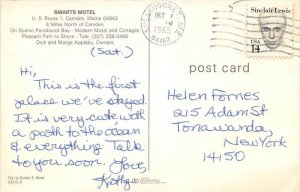 SMARTS MOTEL
U. S. Route 1, Camden, Maine 04843
4 Miles North of Camden
On Scenic Penobscot Bay - Modern Motel and Cottages
Private Shore - Pets - TV - Tel. (207) 236-3466
Dick and Marge Appleby, Owners
(Sat.)
Hi,
This is the first
place we've stayed.
It is very cute with
a path to the ocean
& everything. Talk
to you soon.
Love,
Kathy
OCT 7
1985
04401
Sinclair Lewis
USA
14
post card
Helen Fornes
215 Adam St
Tonawanda,
New York
14150